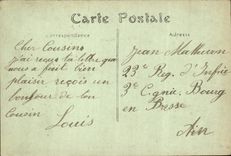 Carte Postale
Correspondance
Cher Cousin
J'ai reçu ta lettre qui
nous a fait bien
plaisir reçois un
bonjour de ton
Cousin
Louis
Jean
23e Rég. d'Infrie
2e Cgnie Bourg
en Bresse
Ain